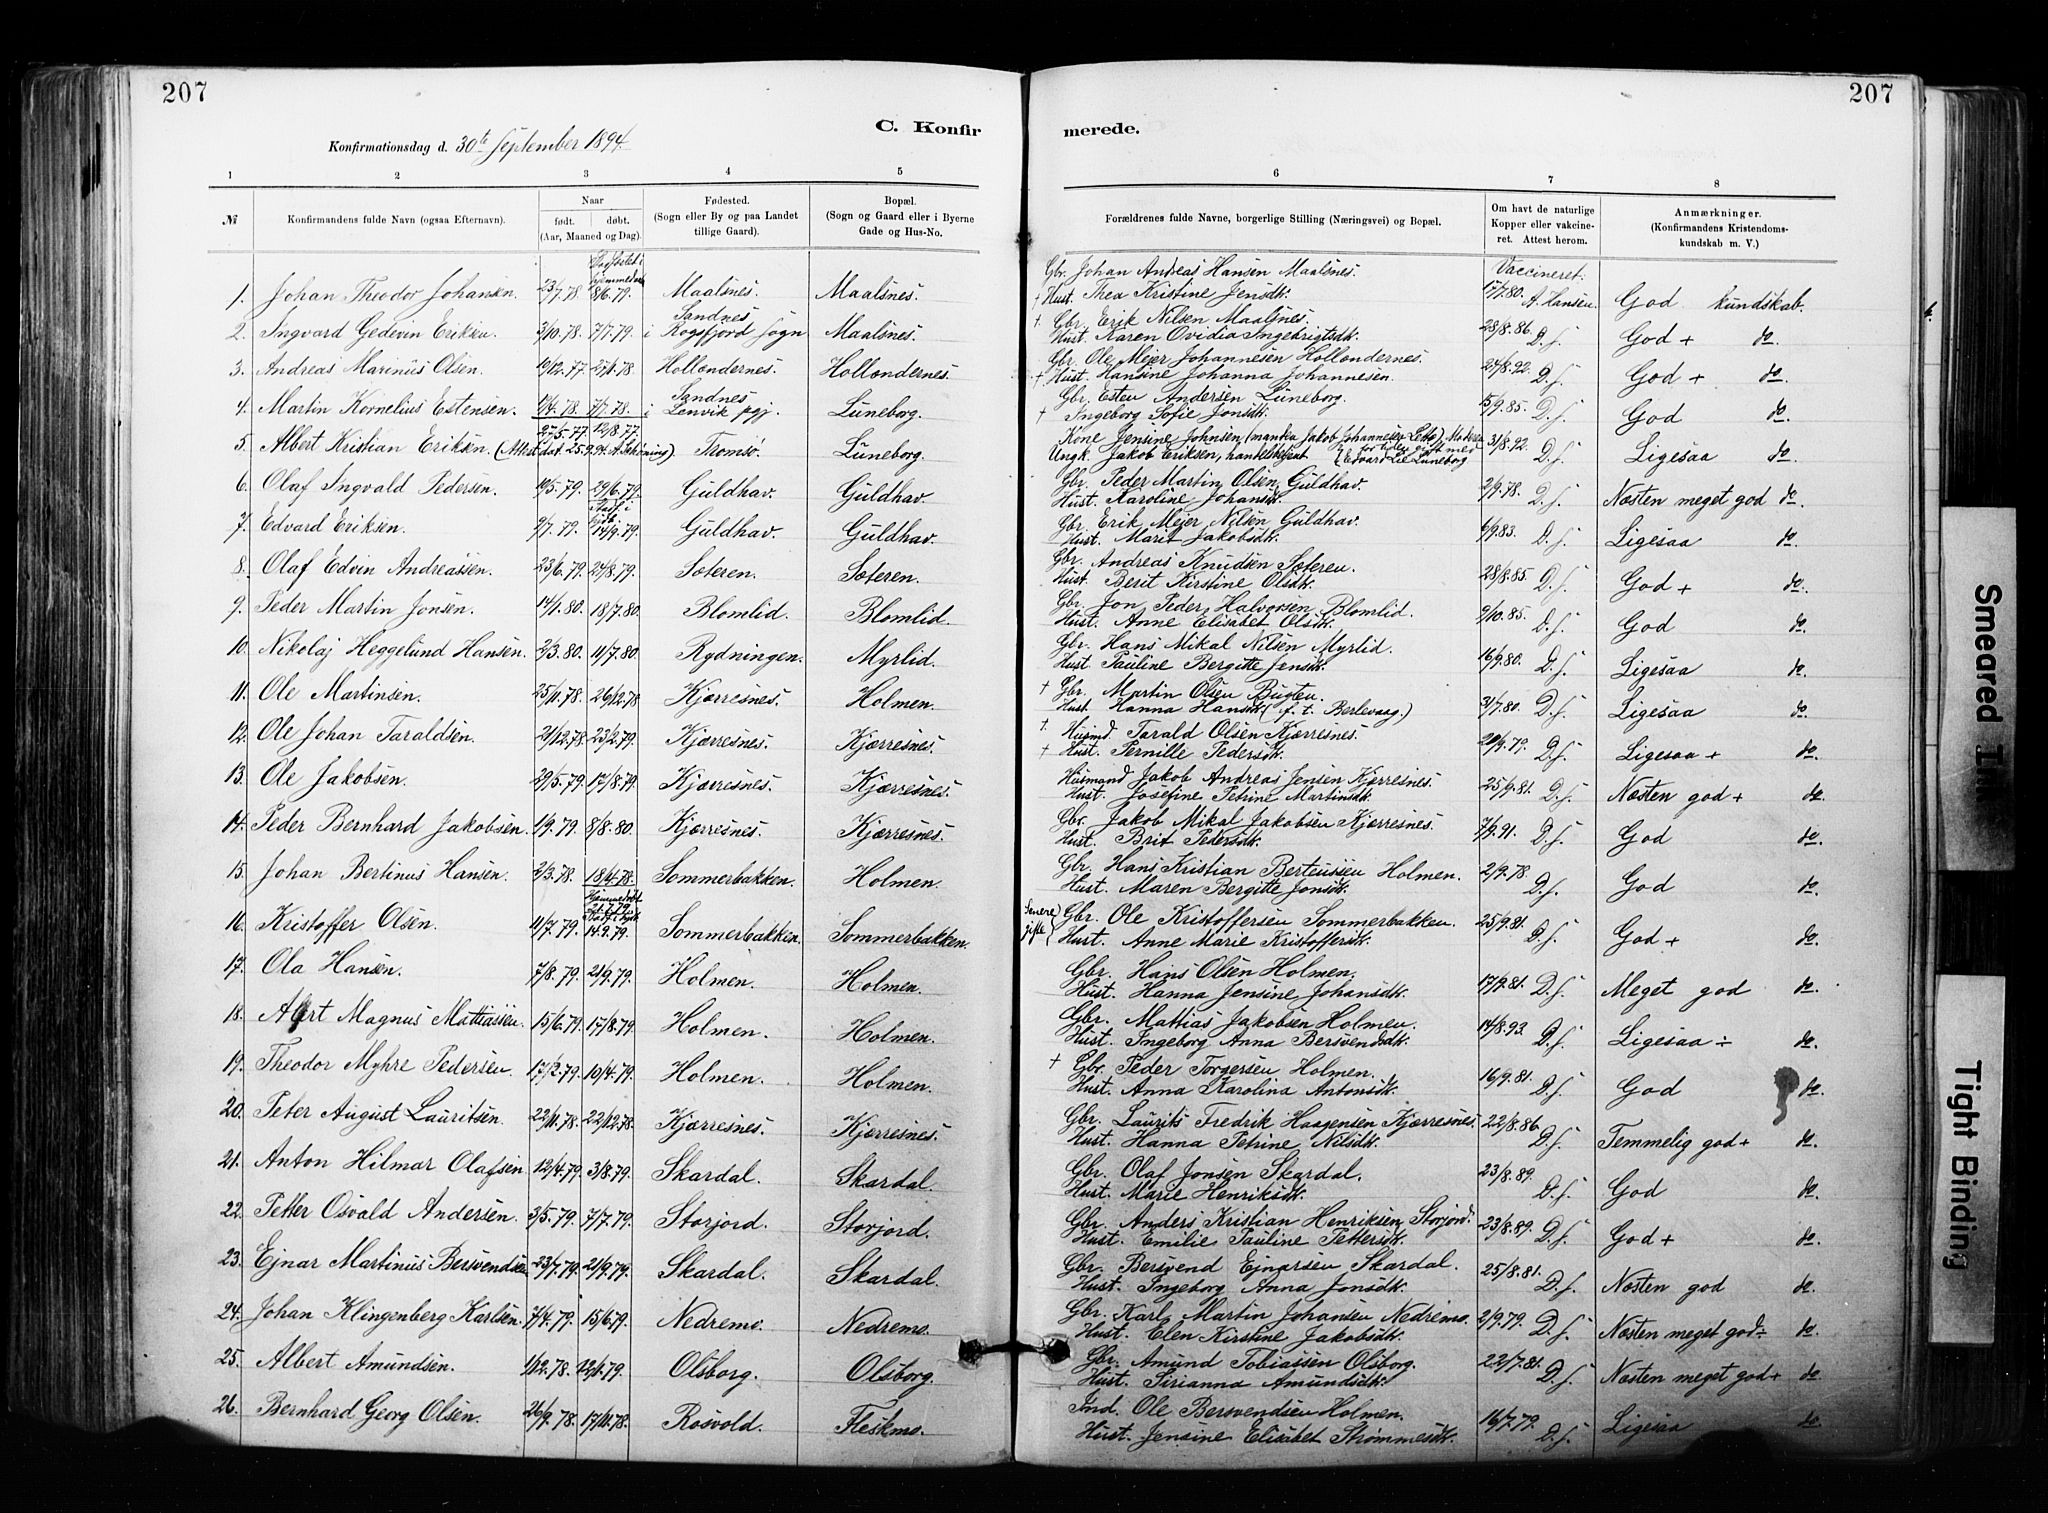 207
207
C. Konfir
merede.
Konfirmationsdag d. 30te September 1894.
1 2 3 4 5 6 7 8
№ Konfirmandens fulde Navn (ogsaa Efternavn). Naar født. døbt. (Aar, Maaned og Dag). Fødested. (Sogn eller By og paa Landet tillige Gaard). Bopæl. (Sogn og Gaard eller i Byerne Gade og Hus-No. Forældrenes fulde Navne, borgerlige Stilling (Næringsvei) og Bopæl. Om havt de naturlige Kopper eller vakcineret. Attest herom. Anmærkninger. (Konfirmandens Kristendomskundskab m. V.)
1. Johan Theodor Johansen. 23/7.78. Stadfæstet i hjemmedøbt 8/6.79. Maalsnes. Maalsnes. Gbr. Johan Andreas Hansen Maalsnes. Vaccineret.
+ Hust. Thea Kristine Jensdtr. 17/7.80. A. Hansen. God kundskab.
2. Ingvard Gedevin Eriksen 3/10.78. 7/7.79. Sandnes i Rogsfjord Sogn Maalsnes. + Gbr. Erik Nilsen Maalsnes.
Hust. Karen Ovidia Ingebrigtsdtr. 28/8.86. D.s. God + do.
3. Andreas Marinus Olsen. 19/12.77. 27/1.78. Hollondernes. Hollondernes. Gbr. Ole Mejer Johannesen Hollondernes.
+ Hust. Hansine Johanna Johannesen. 24/8.92. D.s. God + do.
4. Martin Kornelius Estensen. 1/4.78. 7/7.78. Sandnes i Lenvik pgj. Luneborg. Gbr. Esten Andersen Luneborg.
+ Ingeborg Sofie Jonsdtr. 15/9.85. D.s. God do.
5. Albert Kristian Eriksen. (Attest dat. 25.9.94. A. Schöning) 27/5.77. 12/8.77. Tromsø. Luneborg. Kone Jensine Johnsen,
Ungk. Jakob Eriksen, handelsbetjent Edvard Luneborg 31/8.92. D.s. Ligesaa do.
6. Olaf Ingvald Pedersen. 10/5.79. 29/6.79. Guldhav. Guldhav. Gbr. Peder Martin Olsen Guldhav.
Hust. Karoline Johansdtr. 2/9.78. D.s. Næsten meget god do.
7. Edvard Eriksen. 9/7.79. Stadf. i 14/9.79. Guldhav. Guldhav. Gbr. Erik Mejer Nilsen Guldhav.
Hust. Marit Jakobsdtr. 6/9.83. D.s. Ligesaa do.
8. Olaf Edvin Andreassen. 23/6.79. 24/8.79. Sæteren. Sæteren. Gbr. Andreas Knudsen Sæteren.
Hust. Berit Kirstine Olsdtr. 28/8.85. D.s. God + do.
9. Peder Martin Jonsen. 14/1.80. 18/7.80. Blomlid. Blomlid. Gbr. Jon Peder Halvorsen Blomlid.
Hust. Anne Elisabet Olsdtr. 9/10.85. D.s. God do.
10. Nikolaj Heggelund Hansen. 2/3.80. 11/7.80 Rydningen. Myrlid. Gbr. Hans Mikal Nilsen Myrlid.
Hust Pauline Bergitte Jensdtr. 16/9.80. D.s. Ligesaa do.
11. Ole Martinsen. 25/11.78. 26/12.78 Kjærresnes. Holmen. + Gbr. Martin Olsen Bugten.
Hust. Hanna Hansdtr (f. t. Berlevaag.) 31/7.80. D.s. Ligesaa do.
12. Ole Johan Taraldsen. 21/12.78. 23/2.79. Kjærresnes. Kjærresnes. + Husmd Tarald Olsen Kjærresnes.
+ Hust. Pernille Pedersdtr. 20/9.79. D.s. Ligesaa + do.
13. Ole Jakobsen. 29/5.79. 17/8.79. Kjærresnes. Kjærresnes. Husmand Jakob Andreas Jensen Kjærresnes.
Hust. Josefine Petrine Martinsdtr. 25/9.81. D.s. Næsten god + do.
14. Peder Bernhard Jakobsen. 1/9.79. 8/8.80. Kjærresnes. Kjærresnes. Gbr. Jakob Mikal Jakobsen Kjærresnes.
Hust. Brit Pedersdtr. 7/9.91. D.s. God do.
15. Johan Bertinus Hansen. 2/3.78. 18/4.78. Sommerbakken. Holmen. Gbr. Hans Kristian Berteussen Holmen.
Hust. Maren Bergitte Jonsdtr. 2/9.78. D.s. God do.
16. Kristoffer Olsen. 11/7.79. Hjemmedøbt 21.7.79. 14.9.79. Sommerbakken. Sommerbakken. Senere gifte Gbr. Ole Kristoffersen Sommerbakken.
Hust. Anne Marie Kristoffersdtr. 25/9.81. D.s. God + do.
17. Ola Hansen. 7/8.79. 21/9.79. Holmen. Holmen. Gbr. Hans Olsen Holmen.
Hust. Hanna Jensine Johansdtr. 17/9.81. D.s. Meget god do.
18. Albert Magnus Mathiassen. 15/6.79. 17/8.79. Holmen. Holmen. Gbr. Mattias Jakobsen Holmen.
Hust. Ingeborg Anna Bersvendsdtr. 14/8.93. D.s. Ligesaa ÷ do.
19. Theodor Myhre Pedersen. 17/2.79. 10/4.79. Holmen. Holmen. + Gbr. Peder Torgersen Holmen.
Hust. Anna Karolina Antonsdtr. 16/9.81. D.s. God do.
20. Peter August Lauritsen. 22/11.78. 22/12.78. Kjærresnes. Kjærresnes. Gbr. Laurits Fredrik Haagensen Kjærresnes.
Hust. Hanna Petrine Nilsdtr. 22/8.86. D.s. Temmelig god + do.
21. Anton Hilmar Olafsen 12/4.79. 3/8.79. Skardal. Skardal. Gbr. Olaf Jonsen Skardal.
Hust. Marie Henriksdtr. 23/8.89. D.s. God do.
22. Petter Osvald Andersen. 3/5.79. 7/7.79. Storjord. Storjord. Gbr. Anders Kristian Henriksen Storjord.
Hust. Emilie Pauline Pettersdtr. 23/8.89. D.s. God + do.
23. Ejnar Martinus Bersvendsen 23/7.79. 21/9.79. Skardal. Skardal. Gbr. Bersvend Ejnarsen Skardal.
Hust. Ingeborg Anna Jonsdtr. 25/8.81. D.s. Næsten god do.
24. Johan Klingenberg Karlsen. 7/4.79. 15/6.79. Nedremo. Nedremo. Gbr. Karl Martin Johansen Nedremo.
Hust. Elen Kirstine Jakobsdtr. 2/9.79. D.s. Næsten meget god ÷ do.
25. Albert Amundsen. 1/12.78. 12/1.79. Olsborg. Olsborg. Gbr. Amund Tobiassen Olsborg.
Hust. Sirianna Amundsdtr. 22/7.81. D.s. Næsten meget god + do.
26. Bernhard Georg Olsen. 26/9.78. 17/11.78. Rosvold. Fleskmo. Ind. Ole Bersvendsen Holmen.
Hust. Jensine Elisabet Strømmesdtr. 16/7.79. D.s. Ligesaa do.
Smeared Ink
Tight Binding